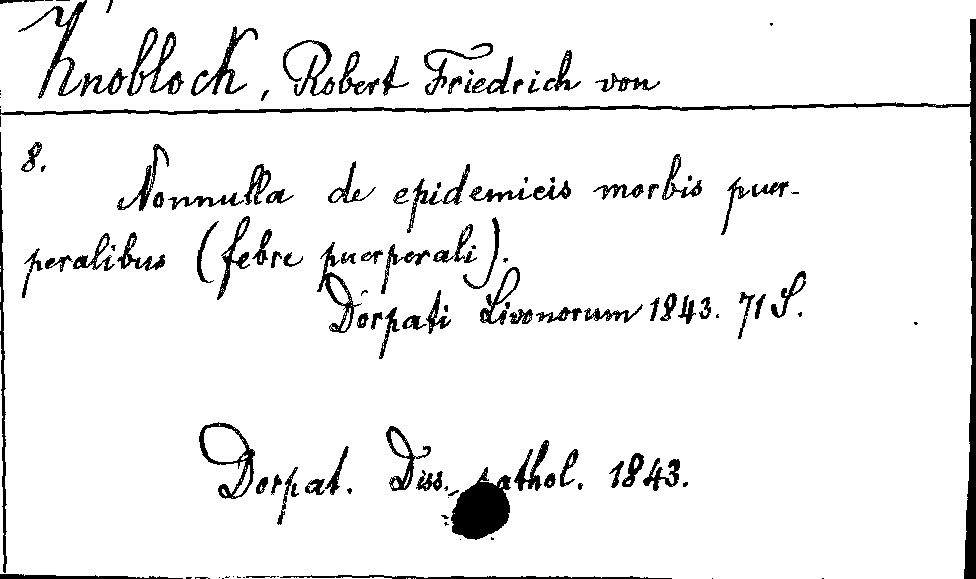 Knobloch, Robert Friedrich von
8.
Nonnulla de epidemicis morbis puer-
peralibus (febre puerperali).
Dorpati Livonorum 1843. 71 S.
Dorpat. Diss. pathol. 1843.